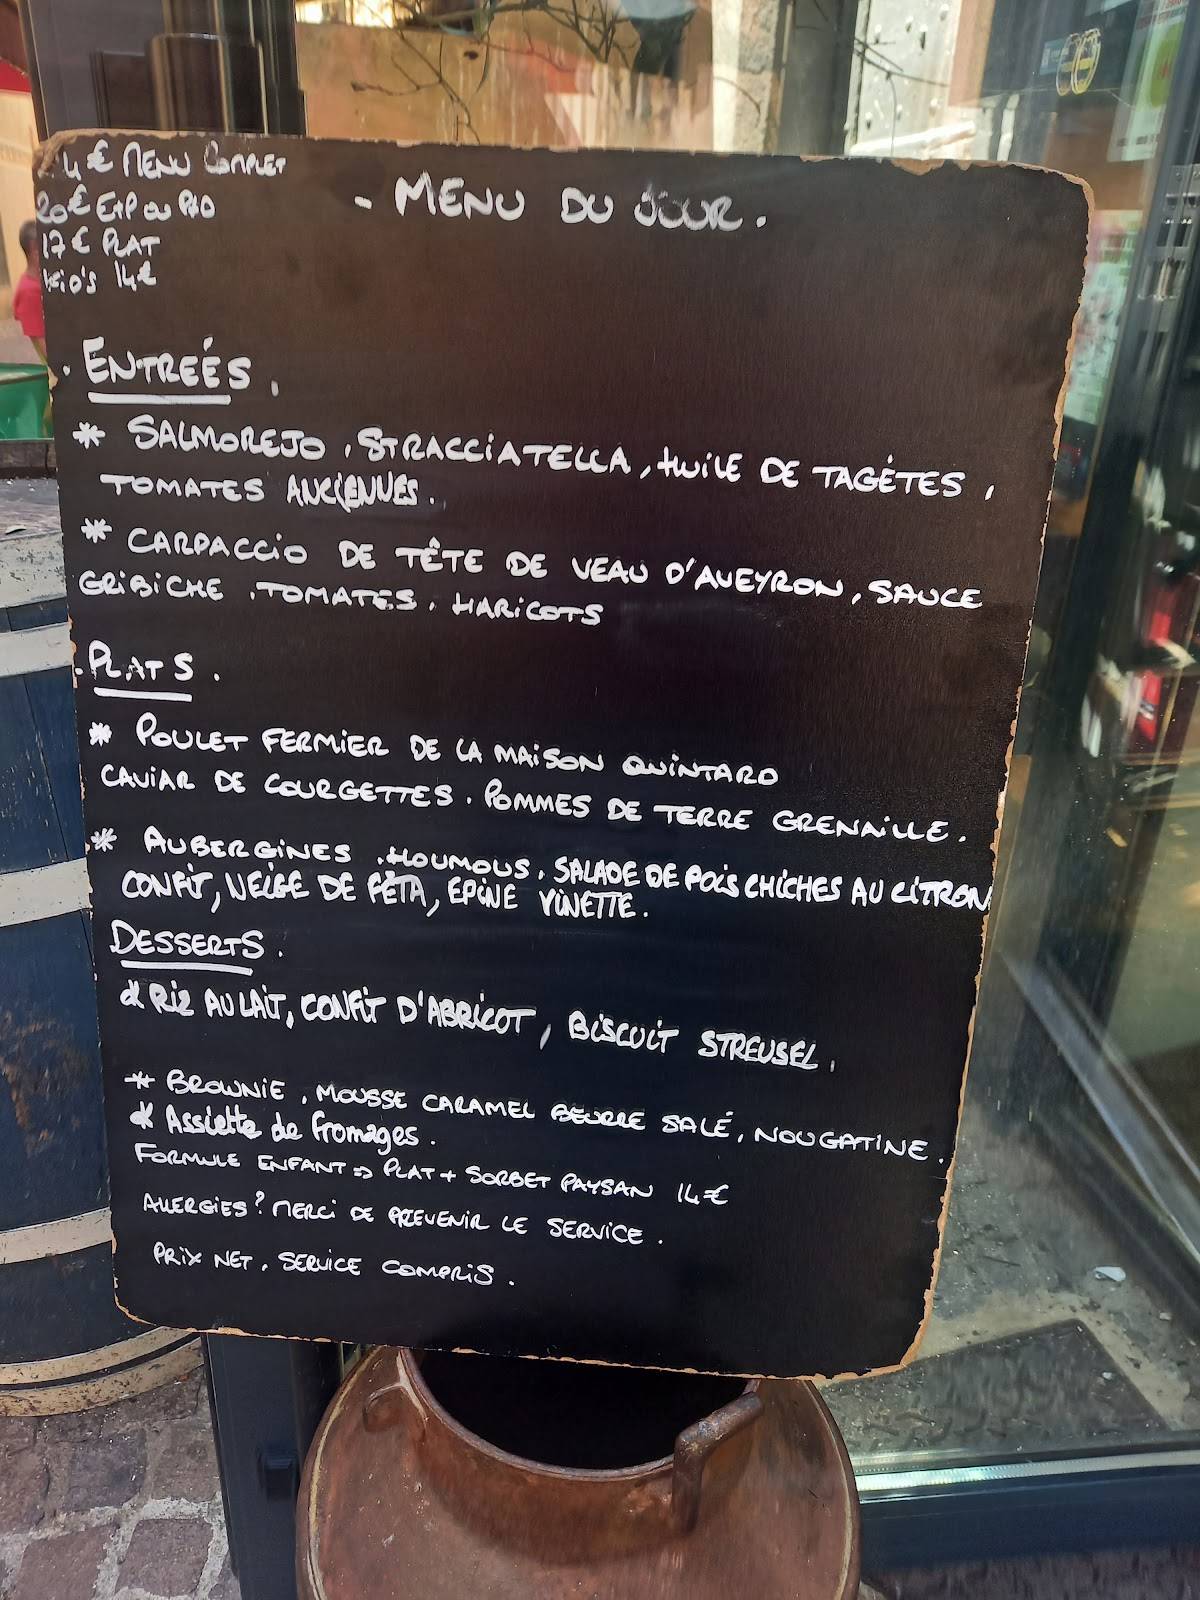 4€ MENU COMPLET
20€ E+P OU P+D
17€ PLAT
KID'S 14€
- MENU DU JOUR.
. ENTREÉS.
* SALMOREJO, STRACCIATELLA, HUILE DE TAGÈTES,
TOMATES ANCIENNES.
* CARPACCIO DE TÊTE DE VEAU D'AVEYRON, SAUCE
GRIBICHE. TOMATES. HARICOTS
. PLATS.
* POULET FERMIER DE LA MAISON QUINTARD
CAVIAR DE COURGETTES. POMMES DE TERRE GRENAILLE.
* AUBERGINES. HOUMOUS. SALADE DE POIS CHICHES AU CITRON
CONFIT, NEIGE DE FÉTA, EPINE VINETTE.
DESSERTS.
* RIZ AU LAIT, CONFIT D'ABRICOT, BISCUIT STREUSEL.
* BROWNIE, MOUSSE CARAMEL BEURRE SALÉ, NOUGATINE.
* Assiette de fromages.
FORMULE ENFANT => PLAT + SORBET PAYSAN 14€
ALLERGIES? MERCI DE PREVENIR LE SERVICE.
PRIX NET. SERVICE COMPRIS.